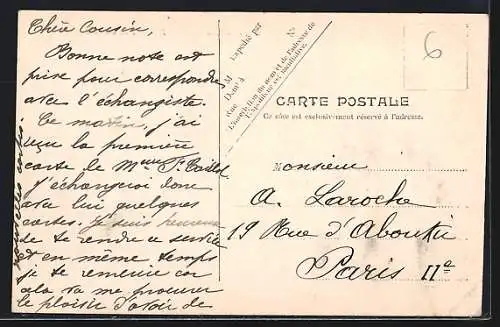 Chère Cousin,
Bonne note est
prise pour correspondre
avec l'échangiste.
Ce matin, j'ai
reçu la première
carte de Mme St.
J'échangerai donc
avec lui quelques
cartes. Je suis heureux
de te rendre ce service
et en même temps
je te remercie car
cela va me procurer
le plaisir d'avoir de
nouvelles cartes
M
Expédié par
No
Demt à
Rue
L'inscription du nom et de l'adresse de
l'Expéditeur est facultative.
6
CARTE POSTALE
Ce côté est exclusivement réservé à l'adresse.
Monsieur
A. Laroche
19 Rue d'Aboukir
Paris IIe